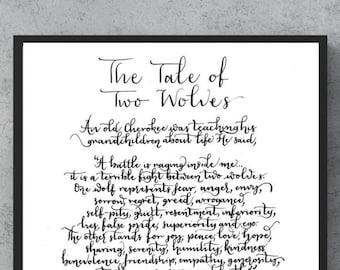 The Tale of
Two Wolves
An old Cherokee was teaching his
grandchildren about life. He said,
"A battle is raging inside me...
it is a terrible fight between two wolves.
One wolf represents fear, anger, envy,
sorrow, regret, greed, arrogance,
self-pity, guilt, resentment, inferiority,
lies, false pride, superiority and ego.
The other stands for joy, peace, love, hope,
sharing, serenity, humility, kindness,
benevolence, friendship, empathy, generosity,